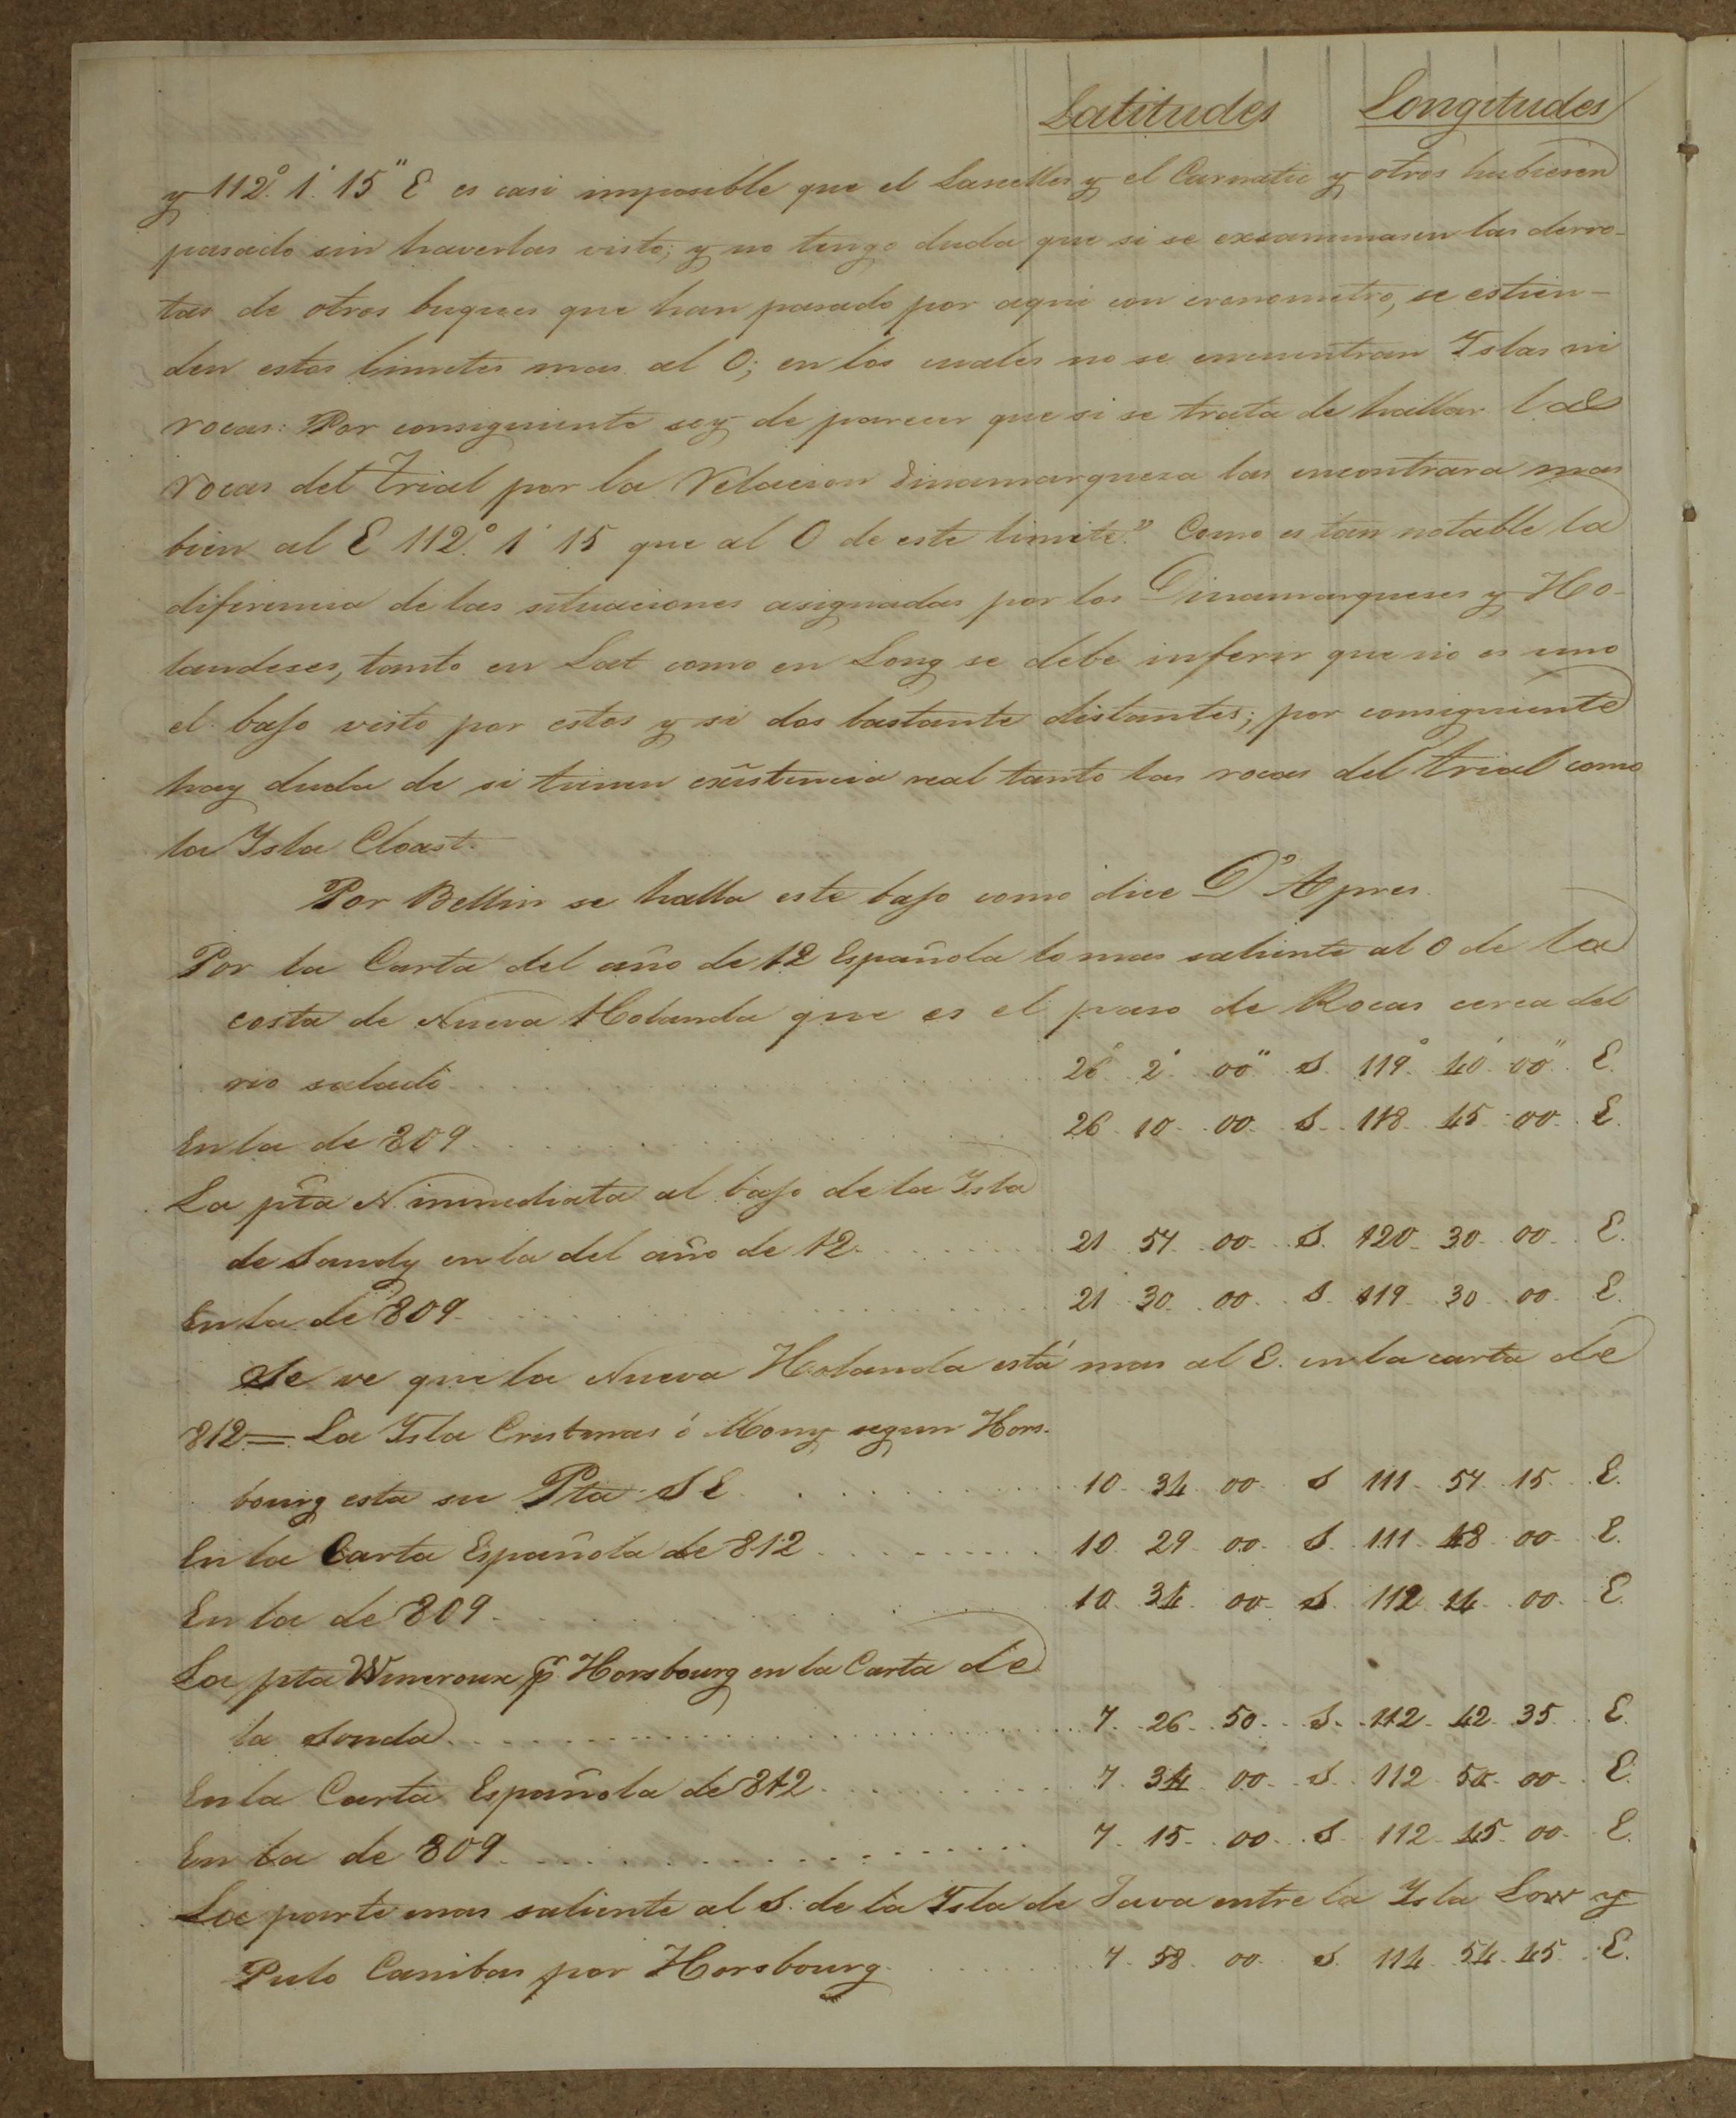 Latitudes Longitudes
y 112.° 1.' 15" E es casi imposible que el Lascelles y el Carnatic y otros hubiesen
pasado sin haverlas visto; y no tengo duda que si se excaminasen las derro-
tas de otros buques que han pasado por aqui con cronometro, se estien-
den estos limites mas al O; en los cuales no se encuentran Islas ni
rocas: Por consiguiente soy de parecer que si se trata de hallar las
rocas del Trial por la Relacion Dinamarquesa las encontrara mas
bien al E 112.° 1' 15 que al O de este limite." Como es tan notable la
diferencia de las situaciones asignadas por los Dinamarqueses y Ho-
landeses, tanto en Lat como en Long se debe inferir que no es uno
el bajo visto por estos y si dos bastante distantes; por consiguiente
hay duda de si tienen existencia real tanto las rocas del trial como
la Isla Cloast.
Por Bellin se halla este bajo como dice D' Apres.
Por la Carta del año de 12 Española lo mas saliente al O de la
costa de Nueva Holanda que es el paso de Rocas cerca del
rio salado 26° 2' 00" S. 119° 40' 00" E.
En la de 809 26 10 00 S. 118 45 00 E.
La pta N. inmediata al bajo de la Isla
de Sandy en la del año de 12 21 57 00 S. 120 30 00 E.
En la de 809 21 30 00 S. 119 30 00 E.
Se ve que la Nueva Holanda está mas al E. en la carta de
812 = La Isla Cristmas ó Mony segun Hors-
bourg esta su Pta SE 10 34 00 S 111 57 15 E.
En la Carta Española de 812 10 29 00 S. 111 48 00 E.
En la de 809 10 34 00 S. 112 24 00 E.
La pta Wineroux p.r Horsbourg en la Carta de
la Sonda 7 26 50 S. 112 42 35 E.
En la Carta Española de 812 7 34 00 S. 112 50 00 E.
En la de 809 7 15 00 S. 112 45 00 E.
La parte mas saliente al S. de la Isla de Java entre la Isla Low y
Pulo Canibas por Horsbourg 7 58 00 S. 114 54 45 E.